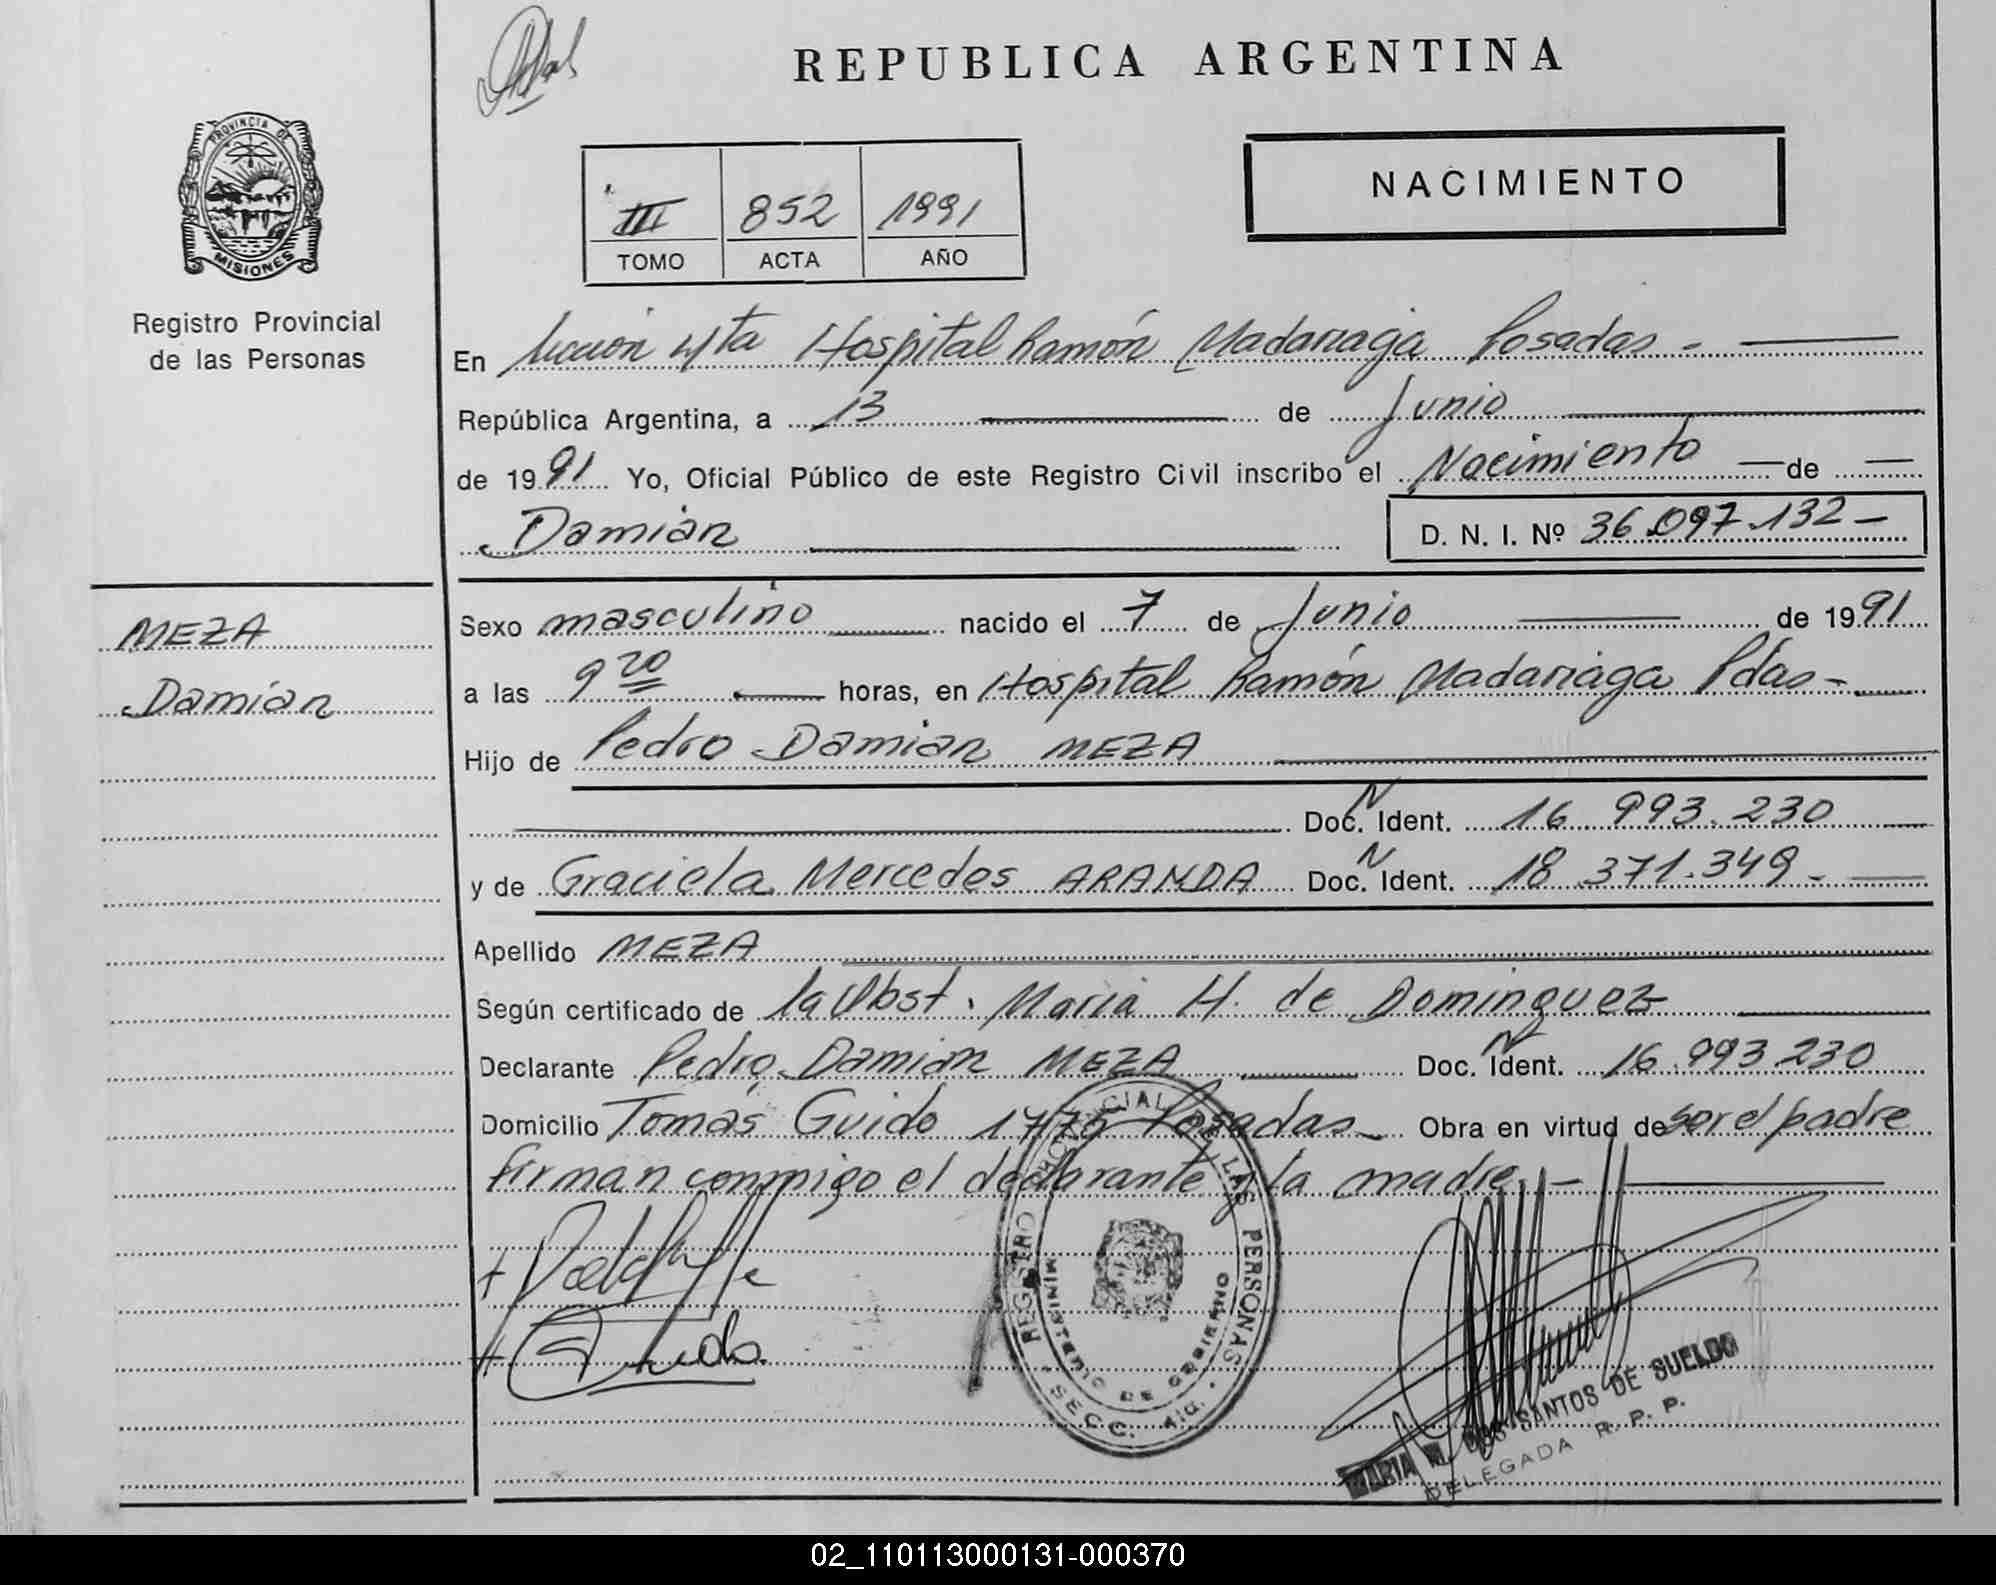 REPUBLICA ARGENTINA
PROVINCIA DE
MISIONES
Registro Provincial
de las Personas
III 852 1991
TOMO ACTA AÑO
NACIMIENTO
En Sección 4ta Hospital Ramón Madariaga Posadas -
República Argentina, a 13 de Junio
de 1991 Yo, Oficial Público de este Registro Civil inscribo el Nacimiento de
Damián D. N. I. Nº 36.097.132 -
MEZA
Damián
Sexo masculino nacido el 7 de Junio de 1991
a las 9 20 horas, en Hospital Ramón Madariaga Pdas -
Hijo de Pedro Damian MEZA
Doc. N Ident. 16.993.230
y de Graciela Mercedes ARANDA Doc. N Ident. 18.371.349 -
Apellido MEZA
Según certificado de la Obst. Maria H. de Dominguez
Declarante Pedro Damian MEZA Doc. N Ident. 16.993.230
Domicilio Tomás Guido 1776 Posadas - Obra en virtud de ser el padre
firman conmigo el declarante y la madre. -
REGISTRO PROVINCIAL DE LAS PERSONAS
MINISTERIO DE GOBIERNO
SECC. 4ta.
MARIA DOS SANTOS DE SUELDO
DELEGADA R. P. P.
02_110113000131-000370